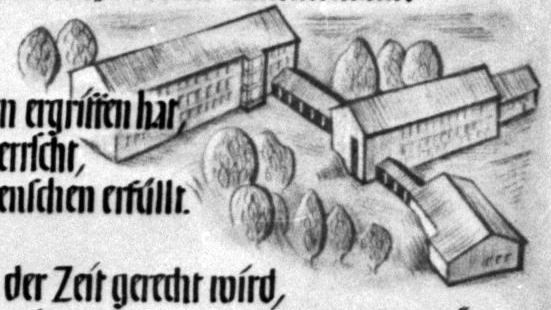 n ergriffen hat,
errscht,
enschen erfüllt.
der Zeit gerecht wird,